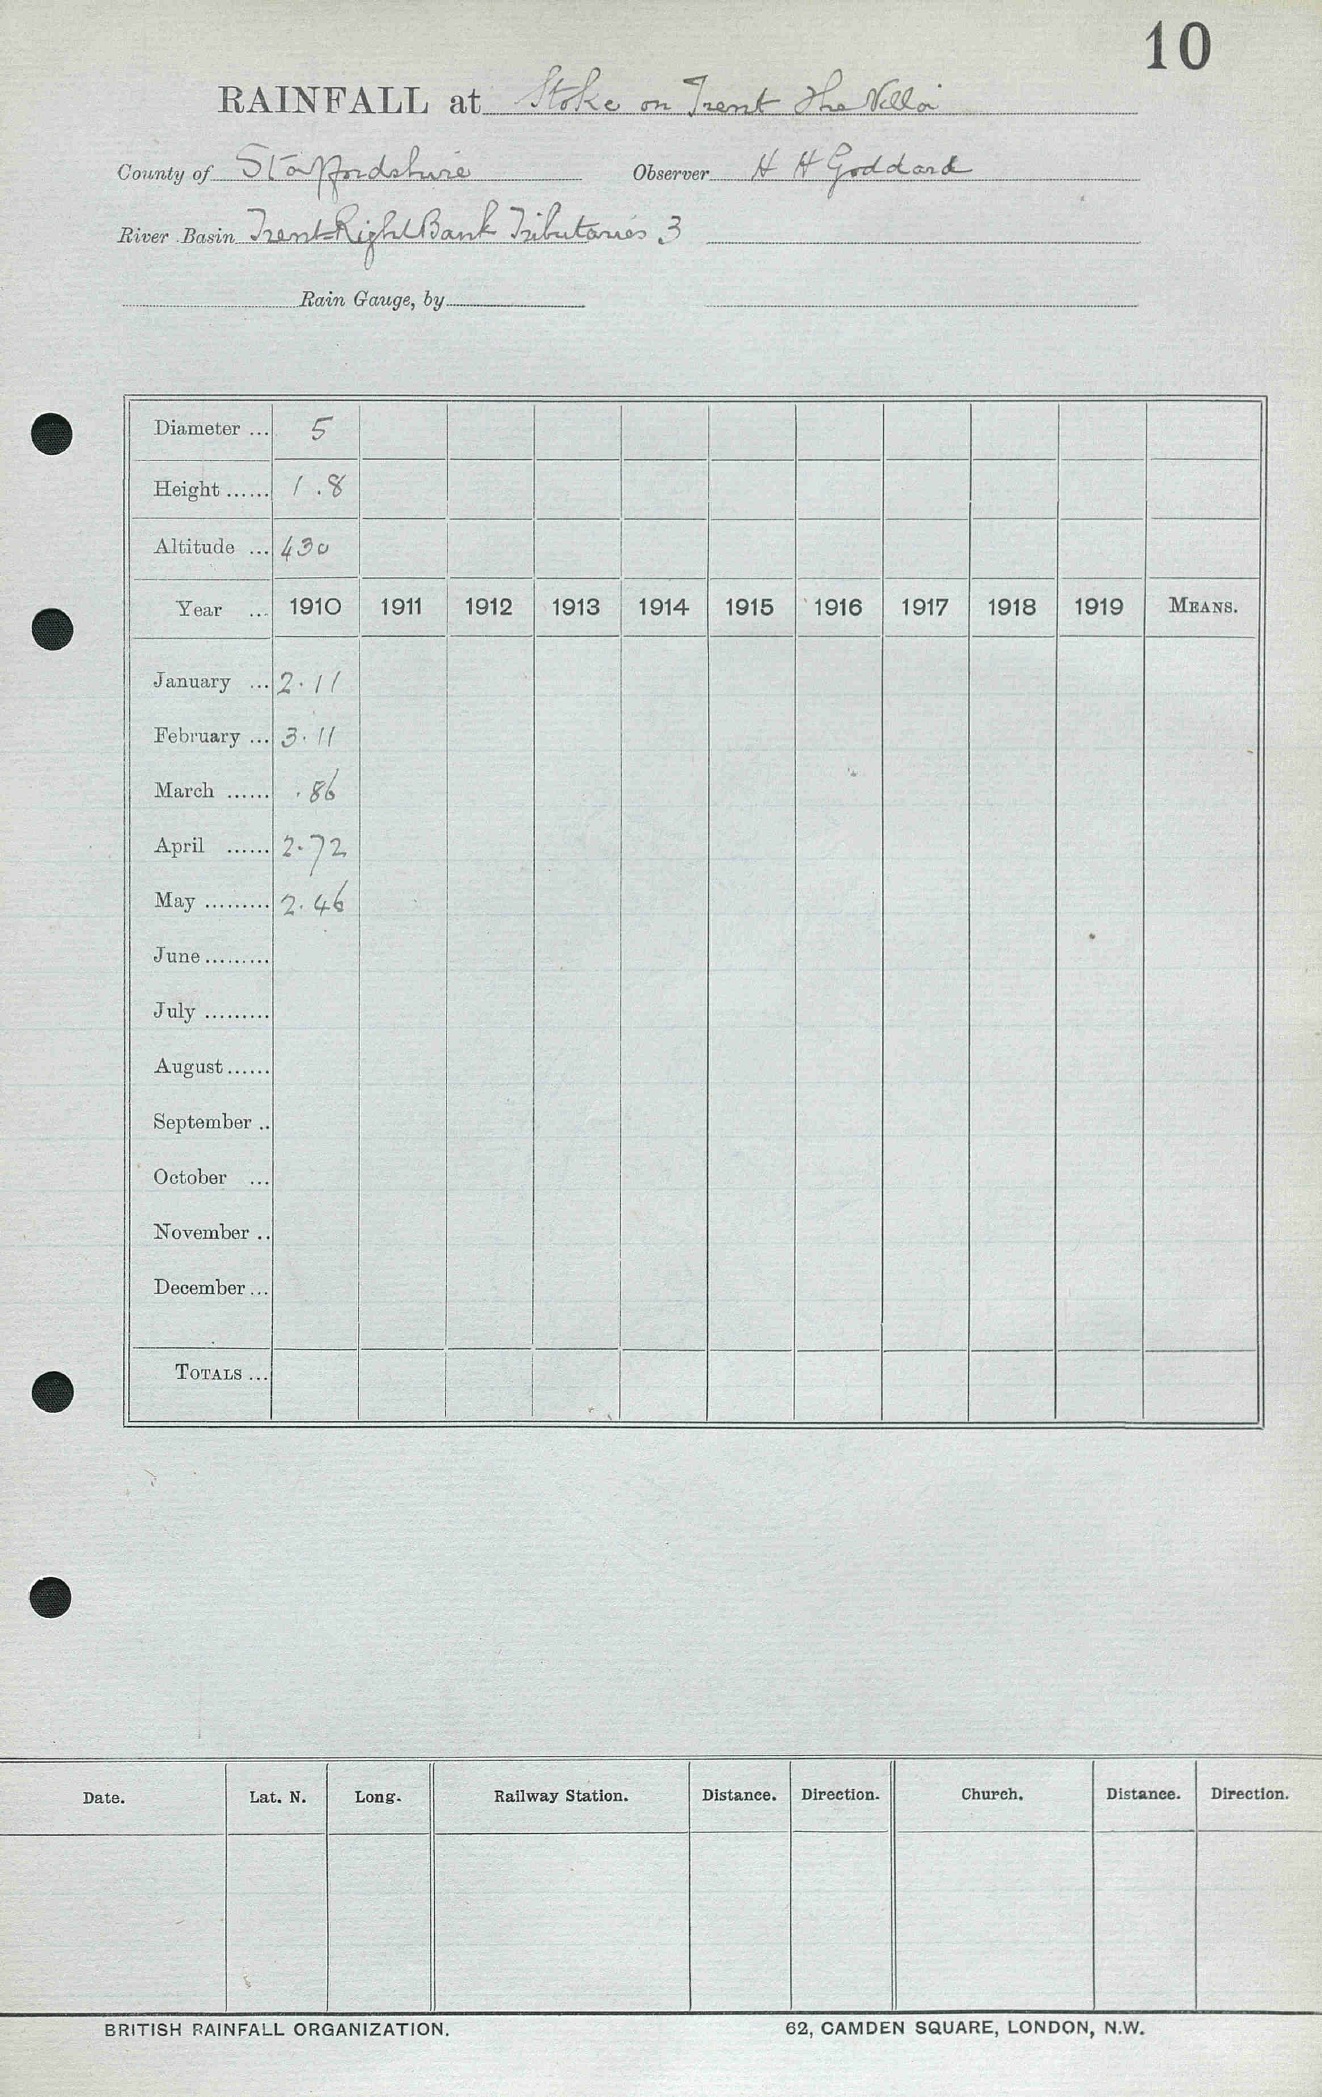 10
RAINFALL at Stoke on Trent The Villa
County of Staffordshire Observer H H Goddard
River Basin Trent-Right Bank Tributaries 3
Rain Gauge, by
Diameter ... 5
Height ...... 1.8
Altitude ... 430
Year ... 1910 1911 1912 1913 1914 1915 1916 1917 1918 1919 MEANS.
January ... 2.11
February ... 3.11
March ...... .86
April ...... 2.72
May ......... 2.46
June .........
July .........
August ......
September ..
October ...
November ..
December ...
TOTALS ...
Date. Lat. N. Long. Railway Station. Distance. Direction. Church. Distance. Direction.
BRITISH RAINFALL ORGANIZATION. 62, CAMDEN SQUARE, LONDON, N.W.